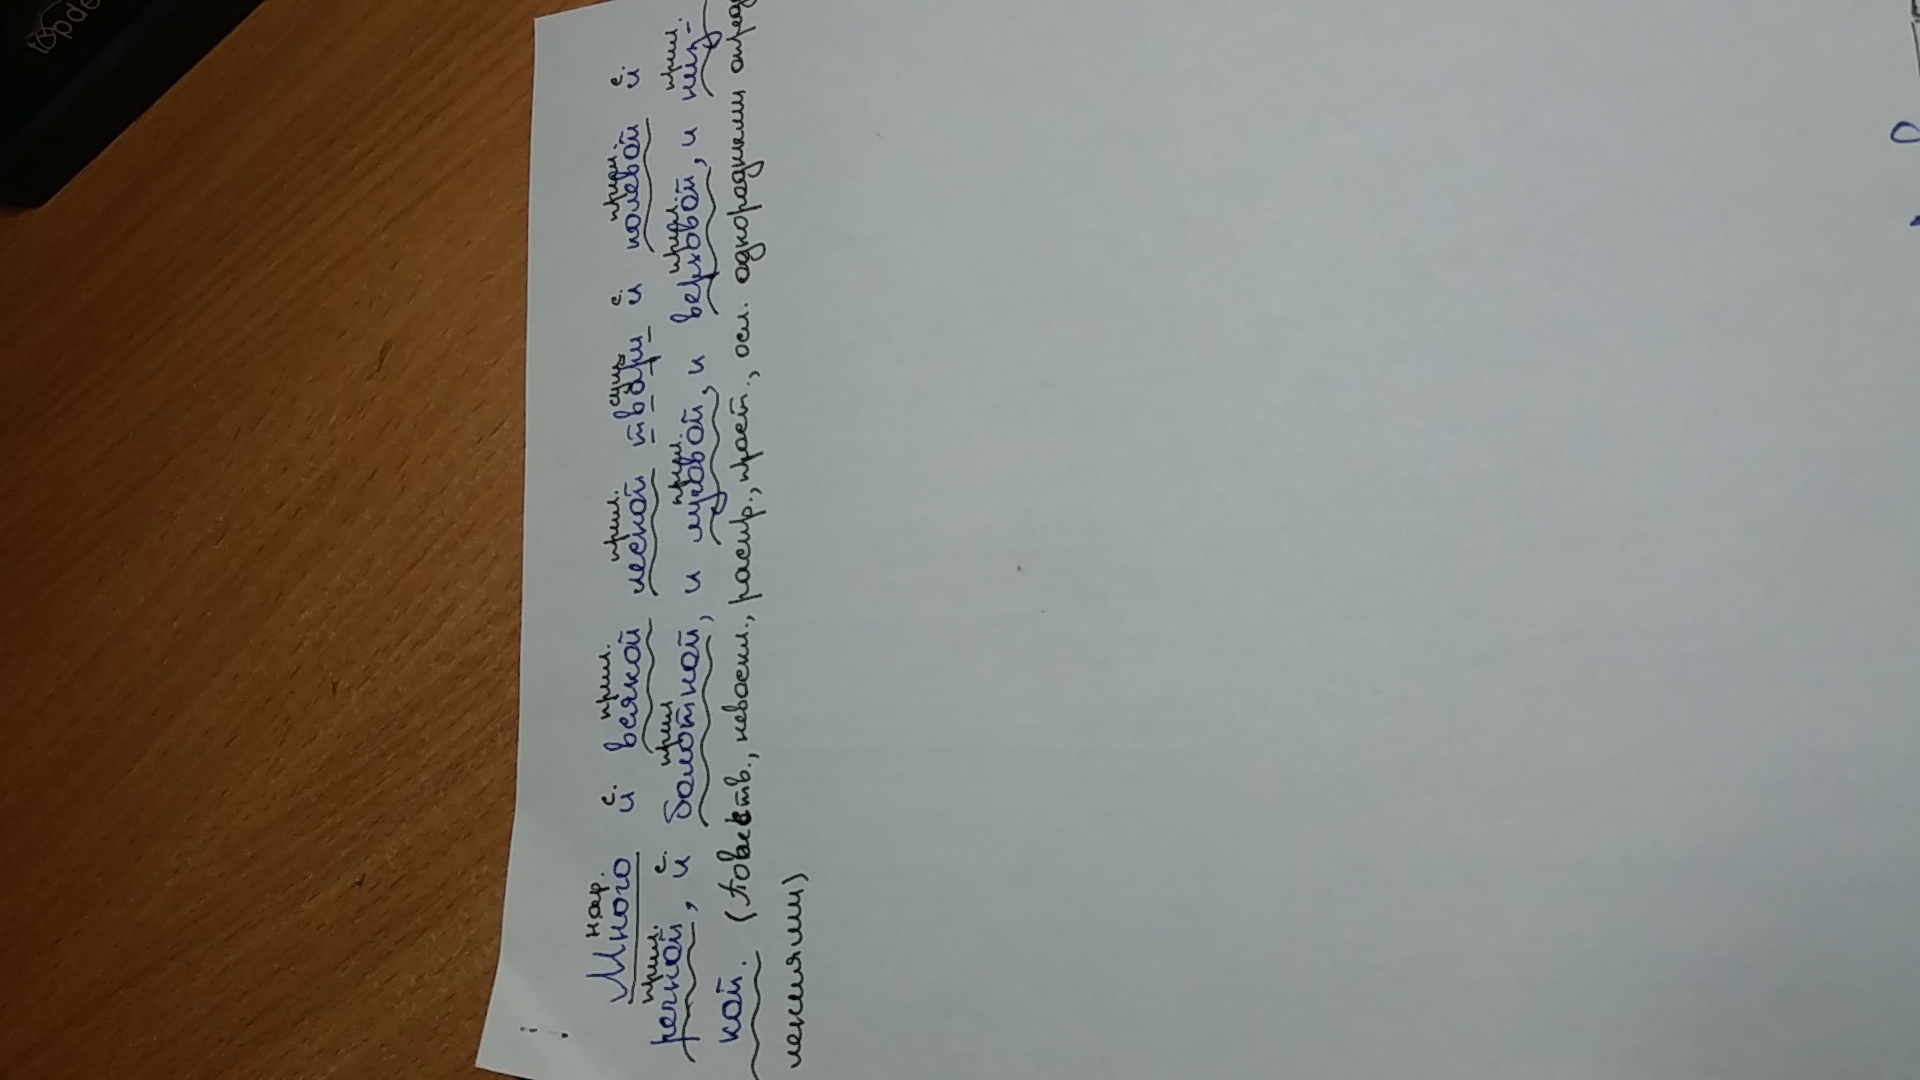 нар. с. прил. прил. сущ. с. прил. с.
Много и всякой лесной твари и полевой и
прил. с. прил. прил. прил. прил.
речной, и болотной, и луговой, и верховой, и низ-
кой. (повеств., невоскл., распр., прост., осл. однородными опред
лениями)